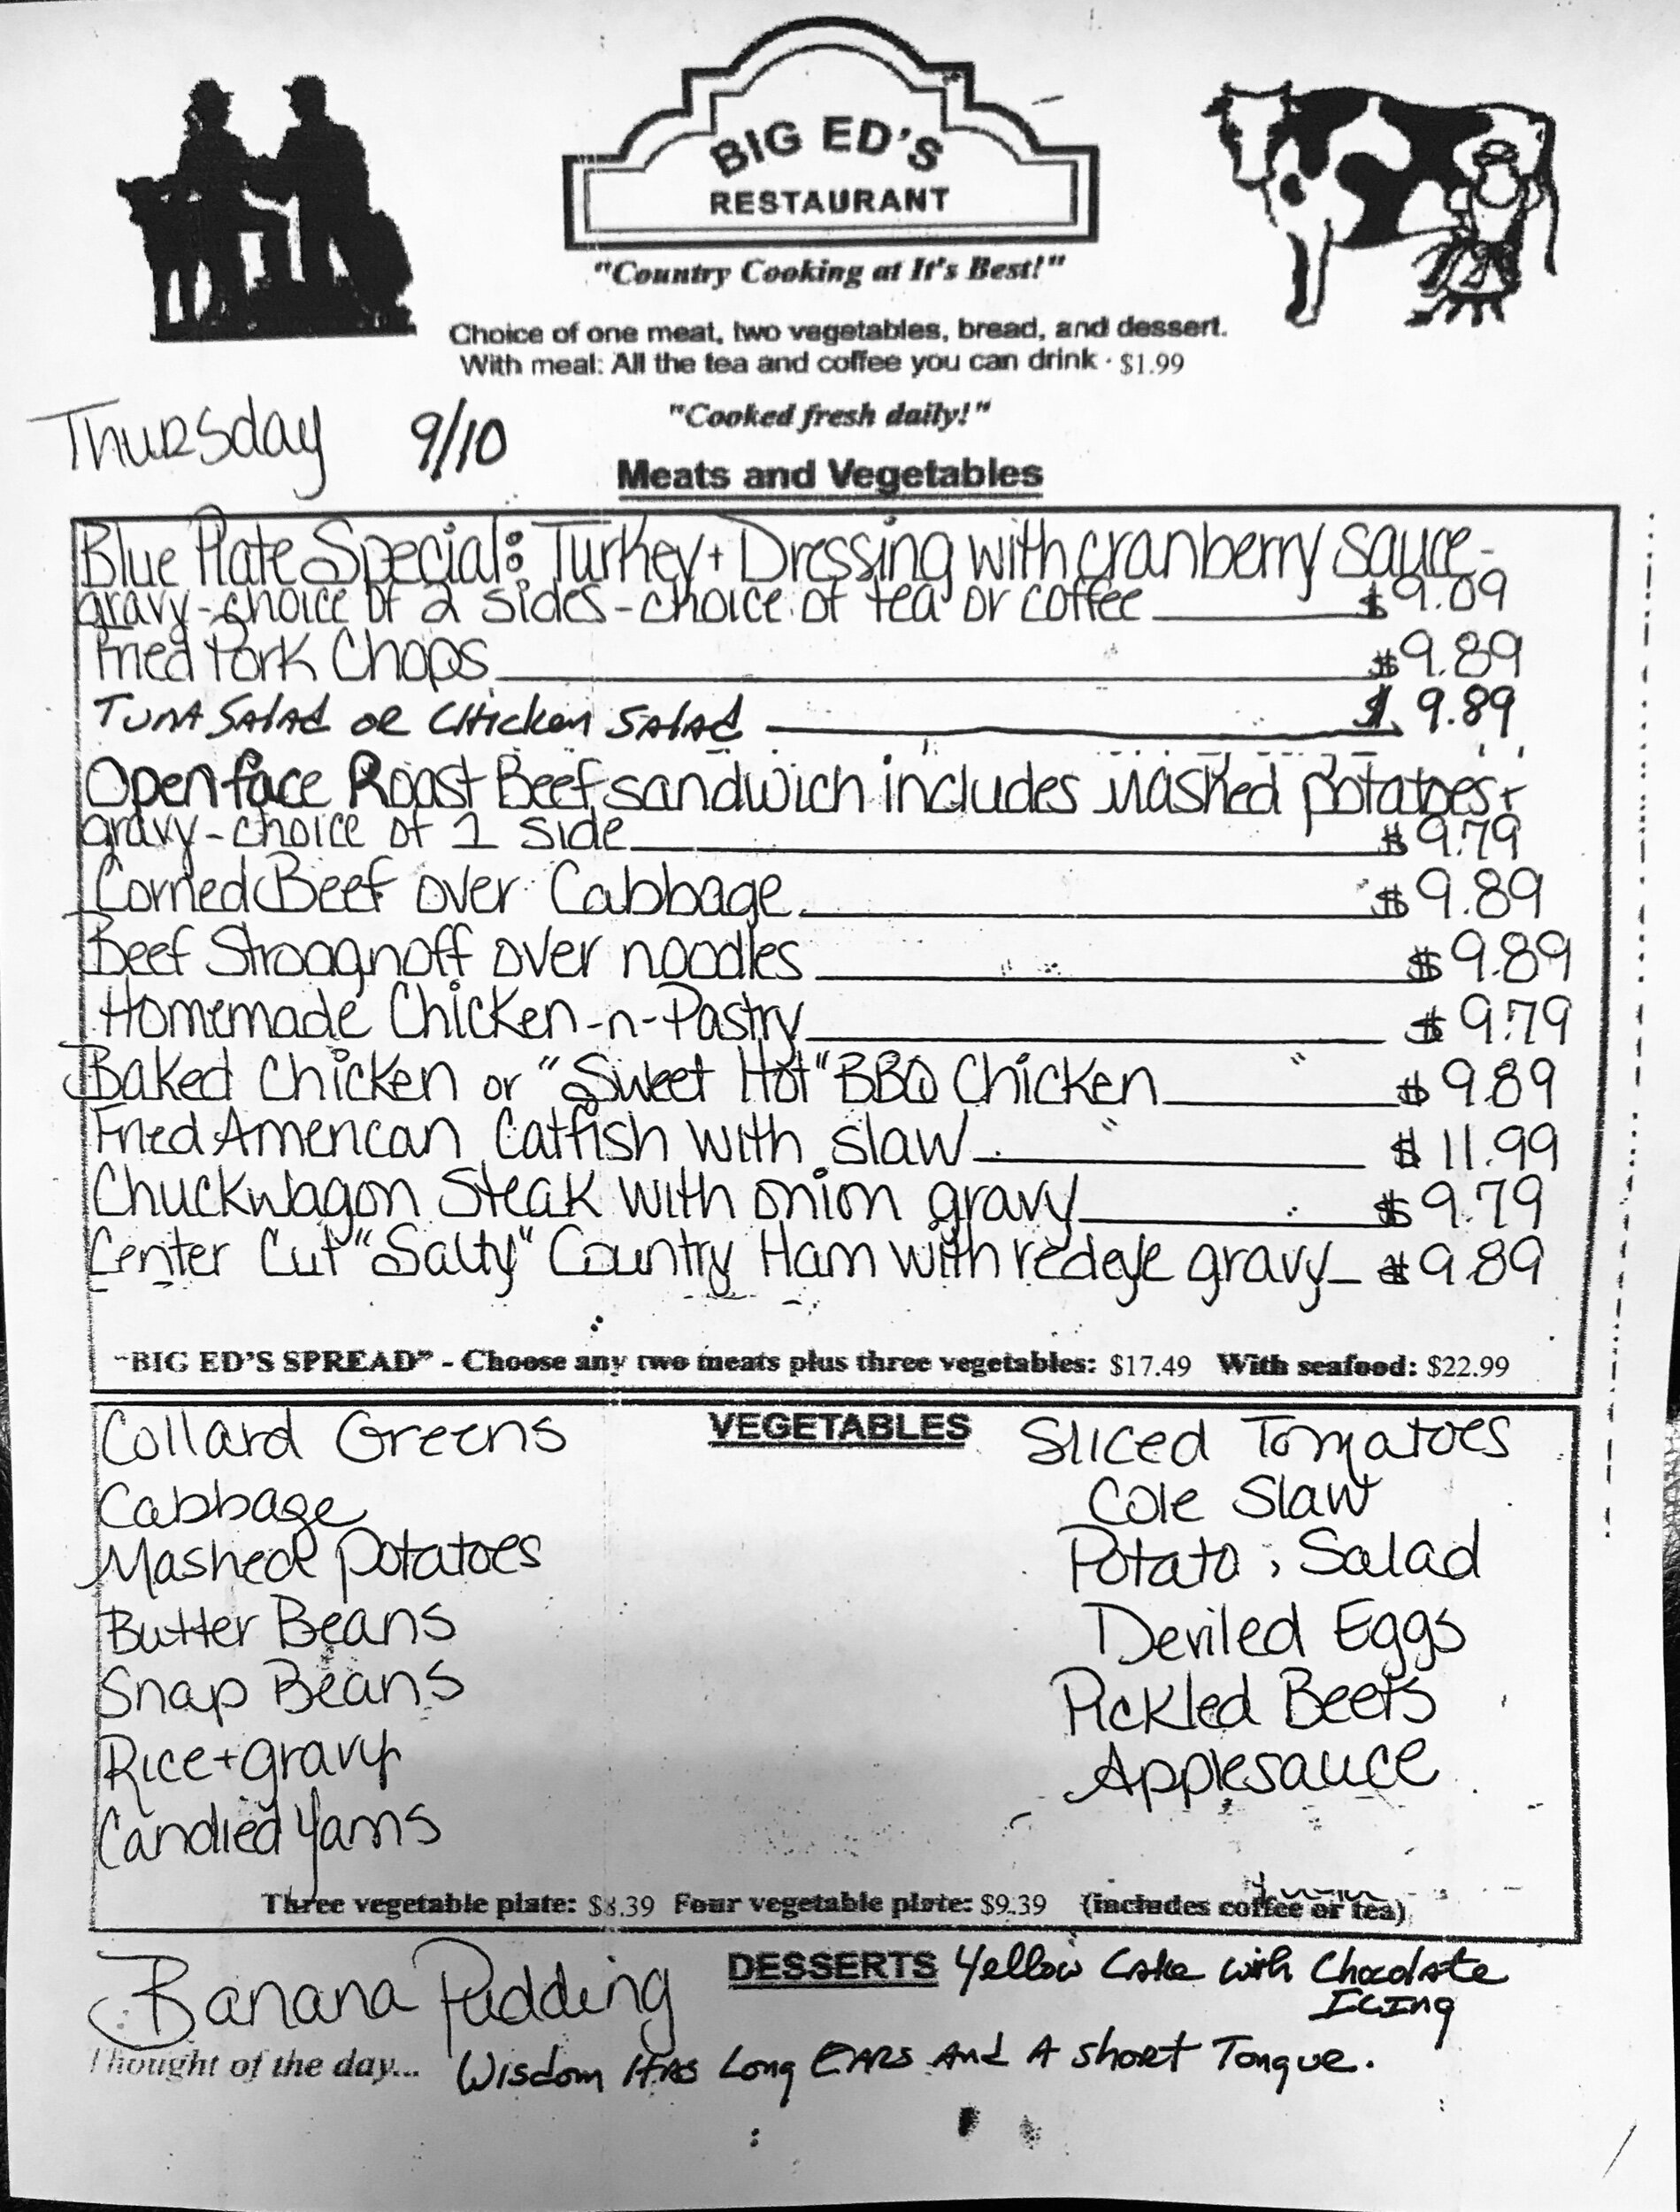 BIG ED'S
RESTAURANT
"Country Cooking at It's Best!"
Choice of one meat, two vegetables, bread, and dessert.
With meal: All the tea and coffee you can drink · $1.99
"Cooked fresh daily!"
Thursday 9/10
Meats and Vegetables
Blue Plate Special: Turkey + Dressing with cranberry sauce -
gravy - choice of 2 sides - choice of tea or coffee $9.09
Fried Pork Chops $9.89
Tuna Salad or Chicken Salad $9.89
Open face Roast Beef sandwich includes mashed potatoes +
gravy - choice of 1 side $9.79
Corned Beef over Cabbage $9.89
Beef Stroagnoff over noodles $9.89
Homemade Chicken-n-Pastry $9.79
Baked Chicken or "Sweet Hot" BBQ Chicken $9.89
Fried American Catfish with slaw $11.99
Chuckwagon Steak with onion gravy $9.79
Center Cut "Salty" Country Ham with redeye gravy $9.89
"BIG ED'S SPREAD" - Choose any two meats plus three vegetables: $17.49 With seafood: $22.99
VEGETABLES
Collard Greens
Cabbage
Mashed Potatoes
Butter Beans
Snap Beans
Rice + gravy
Candied Yams
Sliced Tomatoes
Cole Slaw
Potato Salad
Deviled Eggs
Pickled Beets
Applesauce
Three vegetable plate: $8.39 Four vegetable plate: $9.39 (includes coffee or tea)
DESSERTS
Banana Pudding
Yellow Cake with Chocolate
Icing
Thought of the day... Wisdom Has Long Ears And A short Tongue.